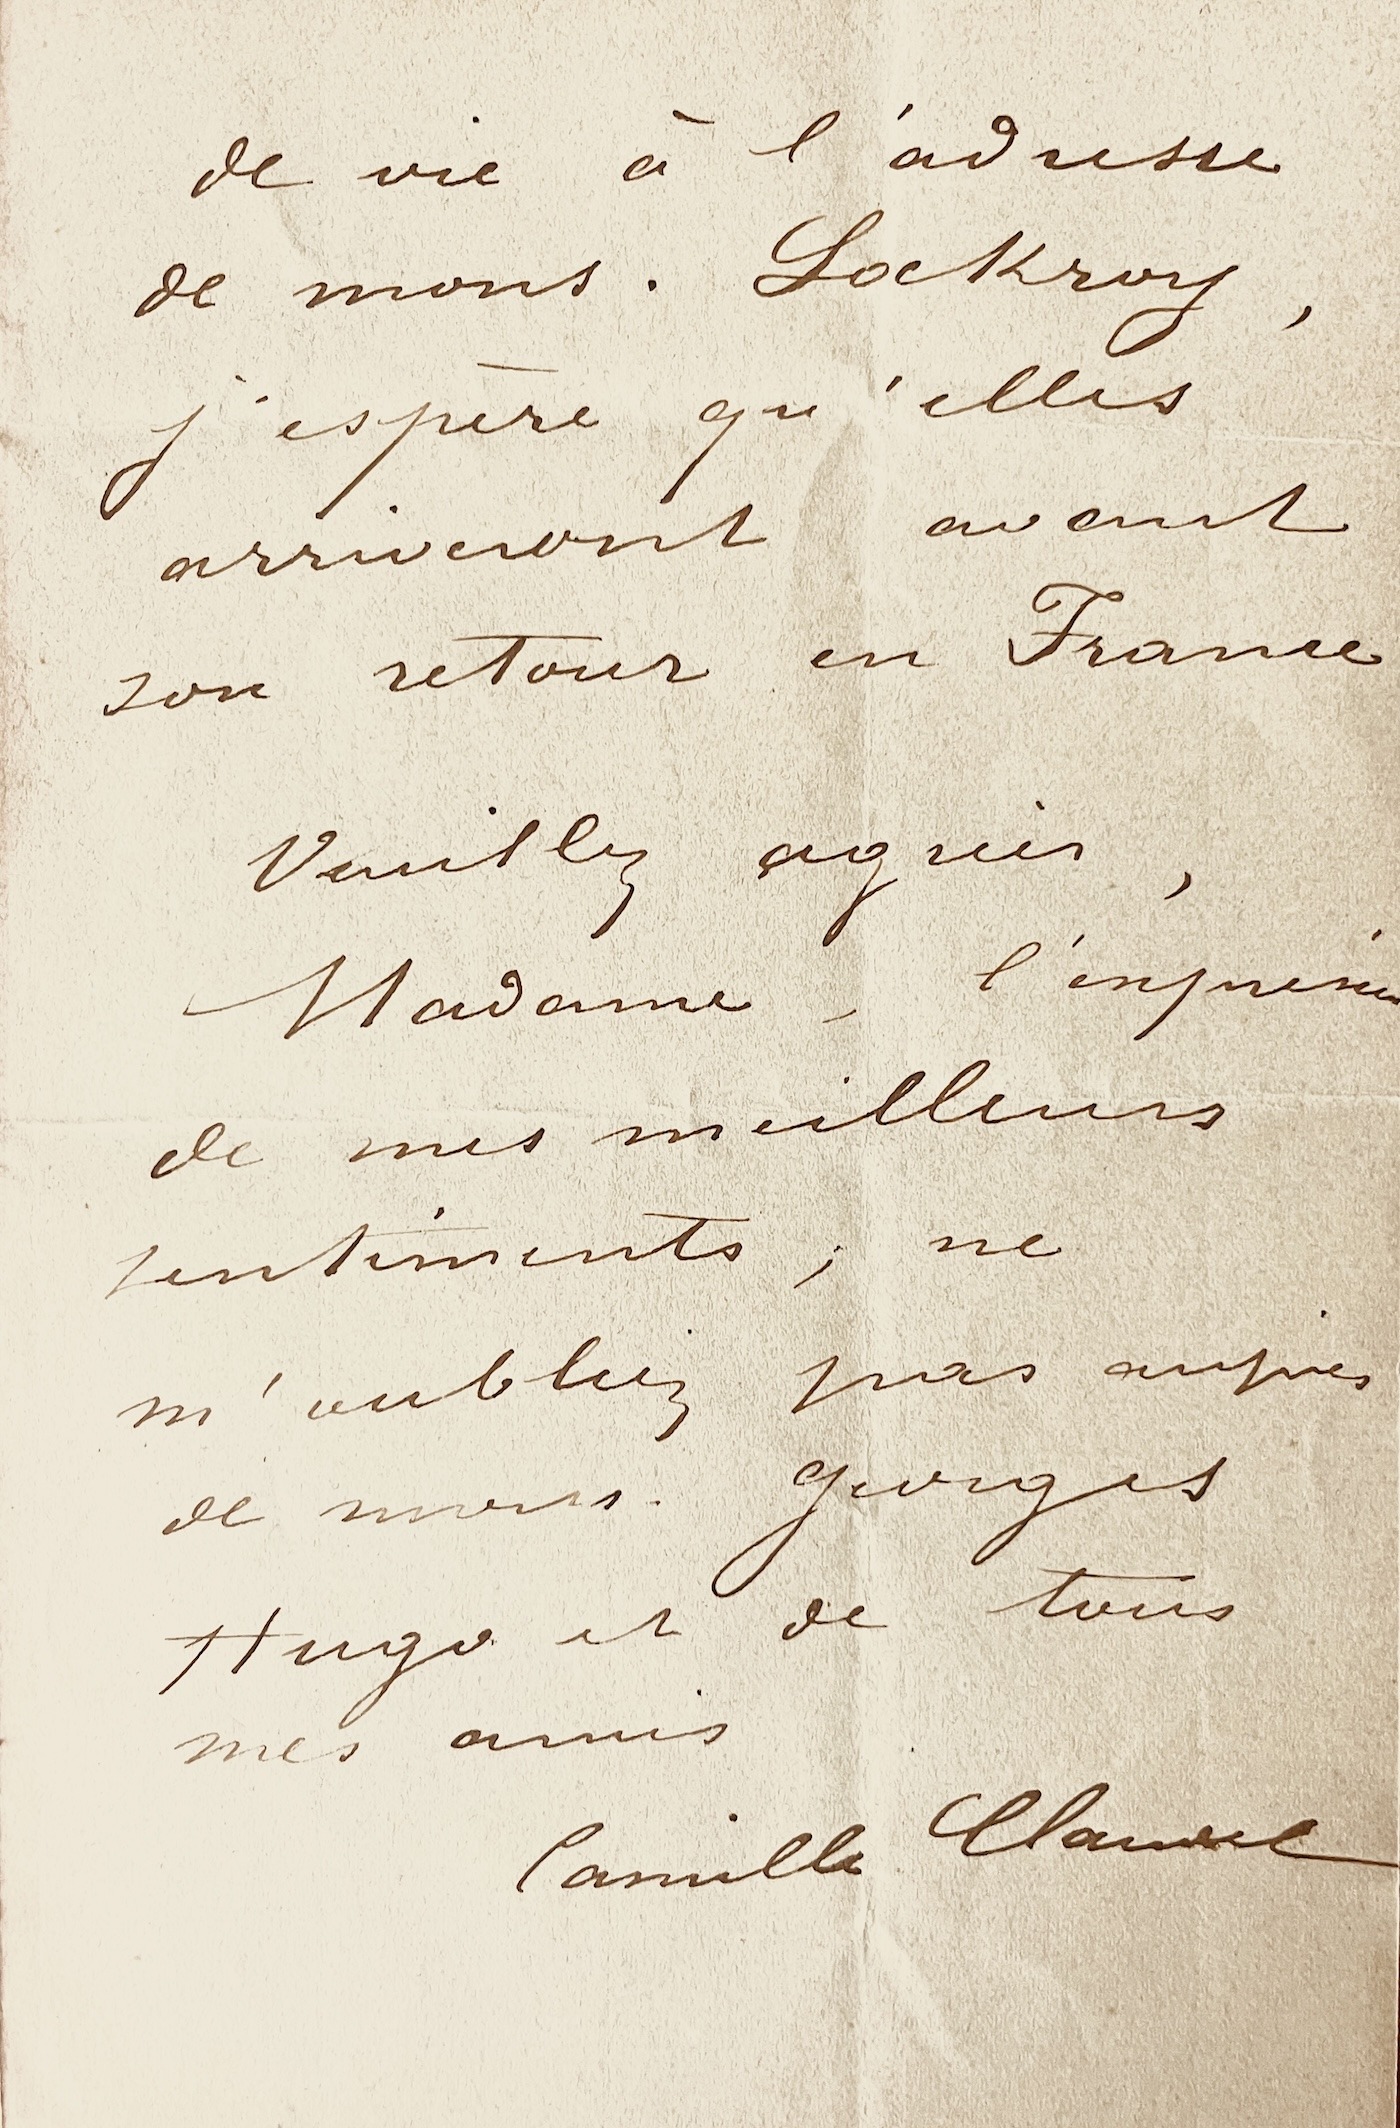 de vie à l'adresse
de mons. Lockroy,
j'espère qu'elles
arriveront avant
son retour en France
Veuillez agréer,
Madame, l'expression
de mes meilleurs
sentiments; ne
m'oubliez pas auprès
de mons. georges
Hugo et de tous
mes amis
Camille Claudel